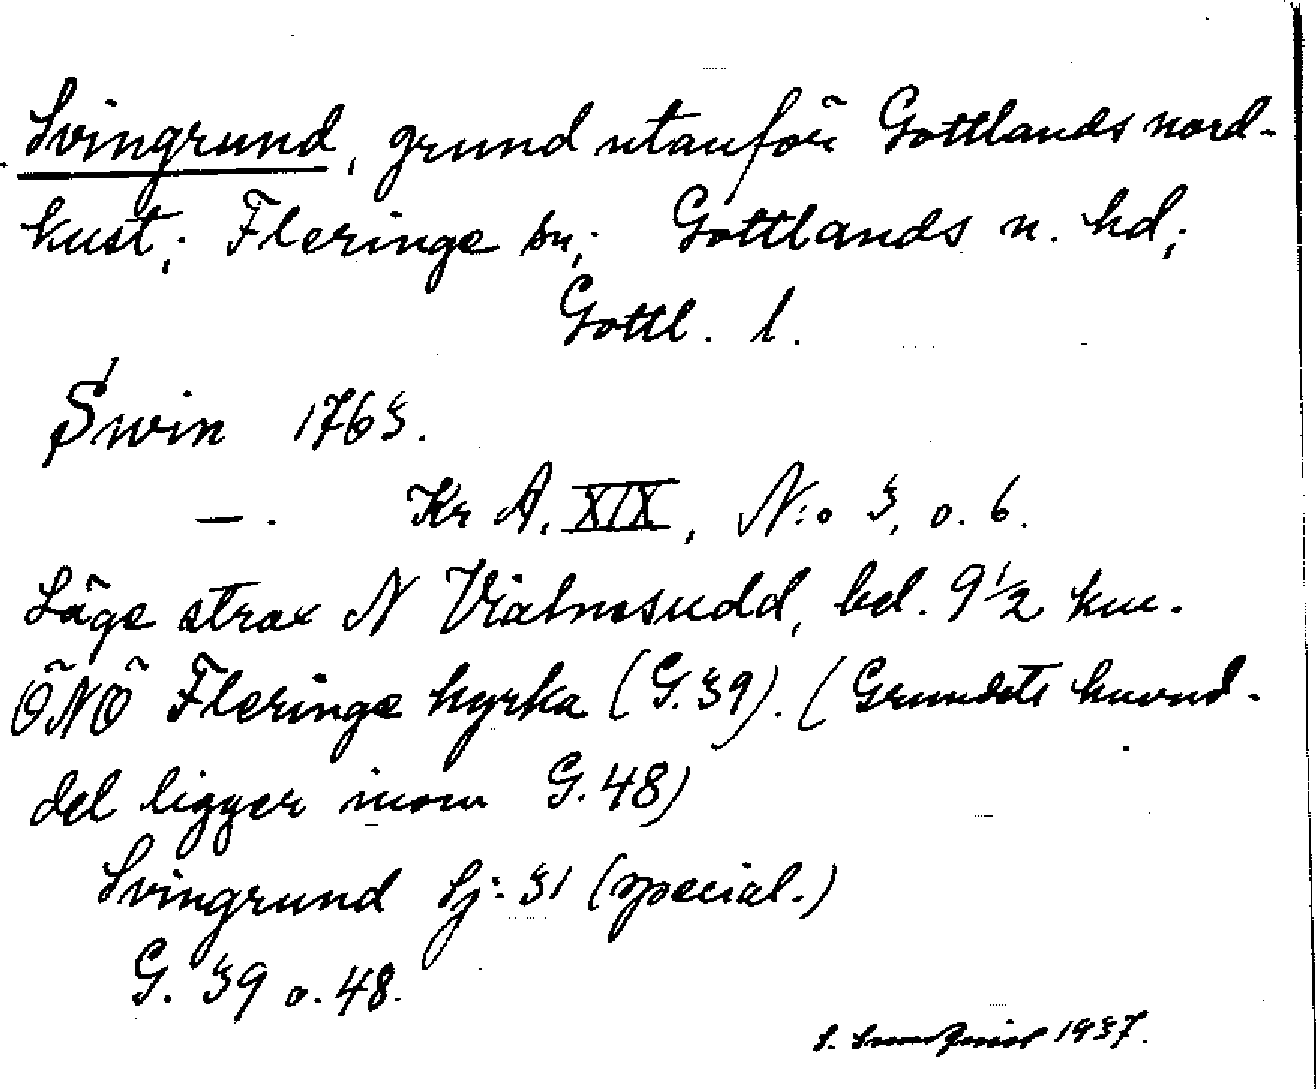 Svingrund, grund utanför Gottlands nord-
kust; Fleringe sn; Gottlands n. hd;
Gottl. l.
Swin 1763.
—. Kr A. XIX, N:o 3, o. 6.
Läge strax N Vialmsudd, bel. 9 1/2 km.
ÖNÖ Fleringe kyrka (G. 39). (Grundets huvud-
del ligger inom G. 48)
Svingrund Sj: 31 (special.)
G. 39 o. 48.
S. 1937.